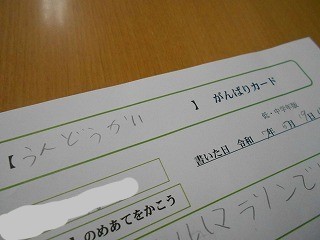 【うんどうかい】がんばりカード
低・中学年用
書いた日 令和
のめあてをかこう
マラソンで